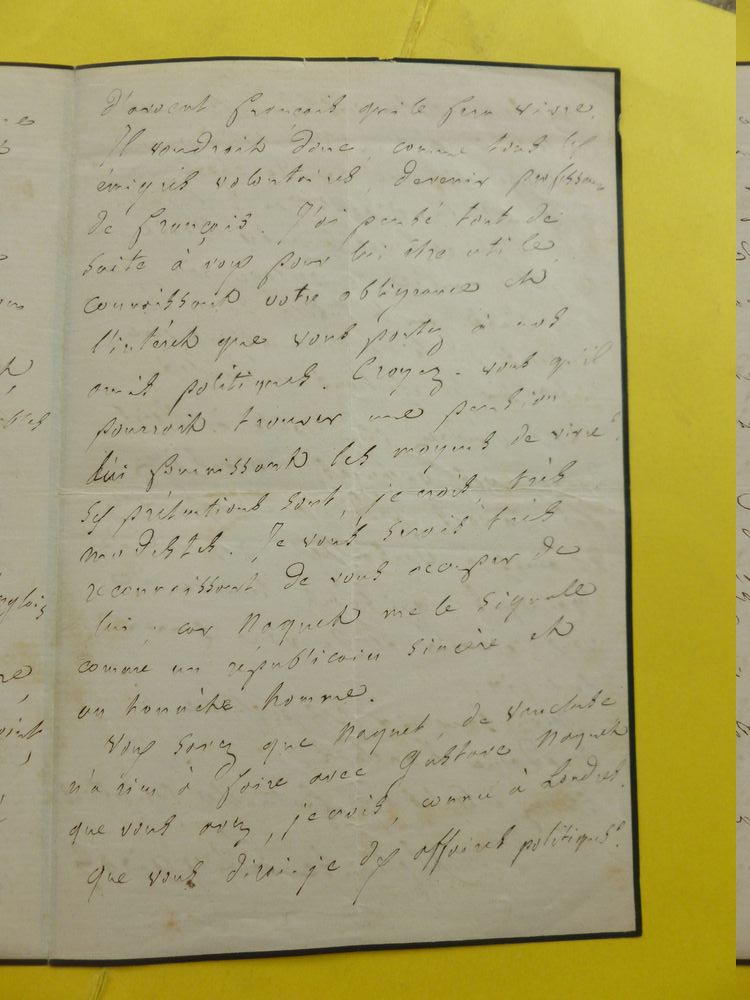 d'avocat français qui le fera vivre.
Il voudrait donc, comme tous les
émigrés volontaires, devenir professeur
de français. J'ai pensé tout de
suite à vous pour lui être utile
connaissant votre obligeance et
l'intérêt que vous portez à nos
amis politiques. Croyez-vous qu'il
pourrait trouver une pension
lui fournissant les moyens de vivre?
Ses prétentions sont, je crois, très
modestes. Je vous serais très
reconnaissant de vous occuper de
lui, car Naquet me le signale
comme un républicain sincère et
un honnête homme.
Vous savez que Naquet, de Vaucluse
n'a rien à faire avec Gustave Naquet
que vous avez, je crois, connu à Londres.
Que vous dirai-je des affaires politiques?